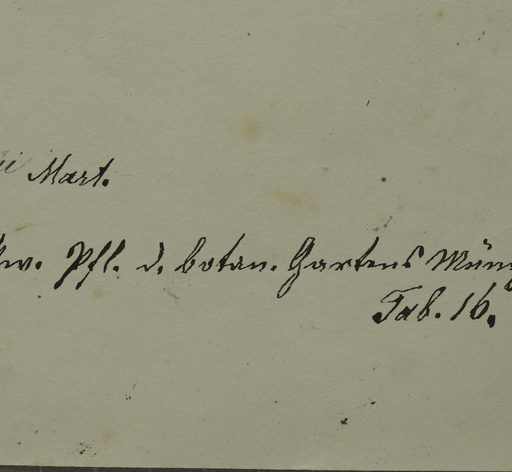 Mart.
Pfl. d. botan. Gartens Münch
Tab. 16.